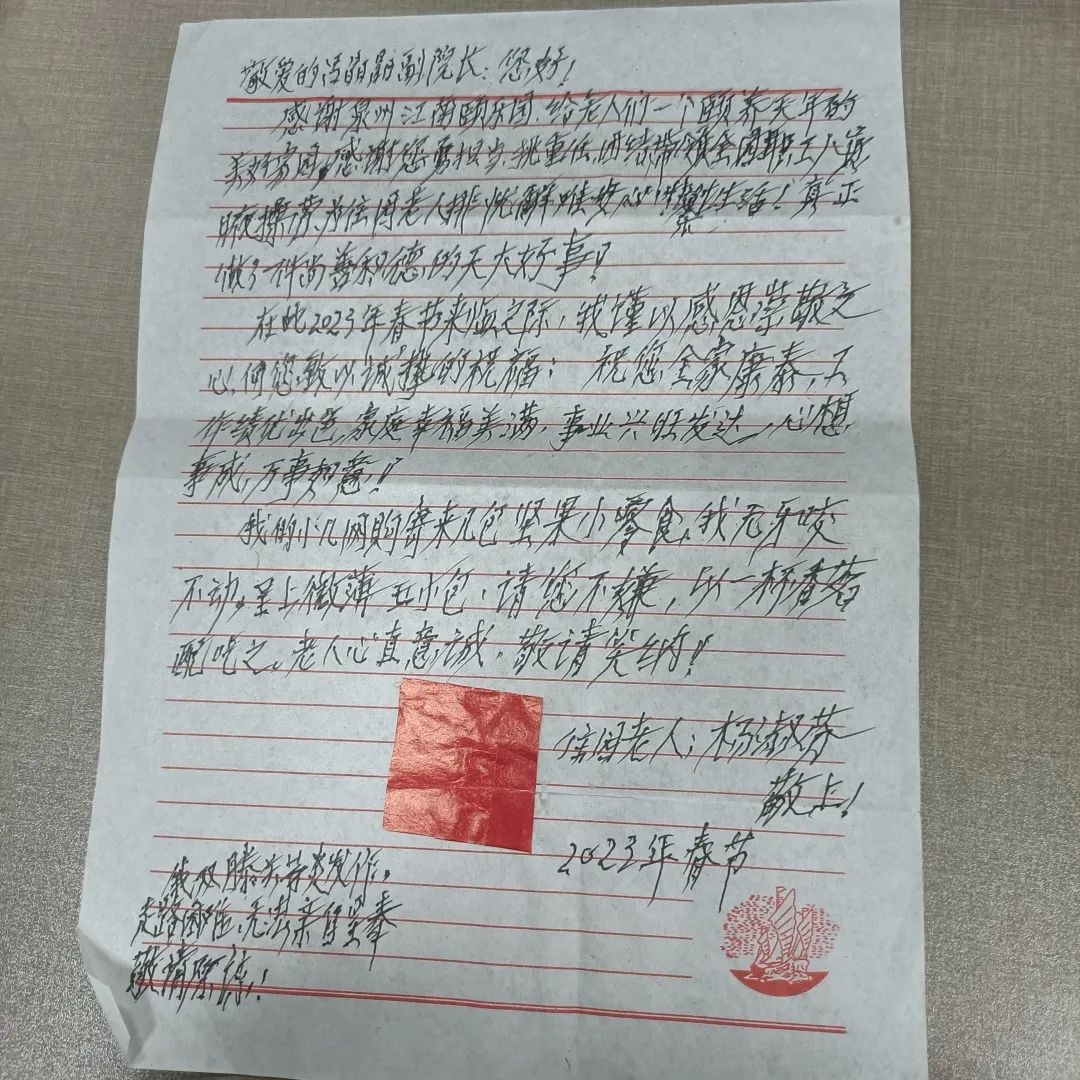 敬爱的副院长:您好!
感谢泉州江南颐乐园,给老人们一个颐养天年的
美好家园。感谢您勇担当、挑重任,团结带领全园职工人员
操劳,为住园老人排忧解难,生活!真正
做了一件尚善积德的天大好事!
在此2023年春节来临之际,我谨以感恩崇敬之
心,向您致以诚挚的祝福:祝您全家康泰,工
作绩优出色,家庭幸福美满,事业兴旺发达,心想
事成,万事如意!
我的小儿网购寄来几包坚果小零食,我无牙咬
不动。呈上微薄五小包,请您不嫌,以一杯香茗
配吃之。老人心真意诚,敬请笑纳!
住园老人:杨淑
敬上!
2023年春节
我双膝关节炎发作,
走路困难,无法亲自呈奉
敬请原谅!